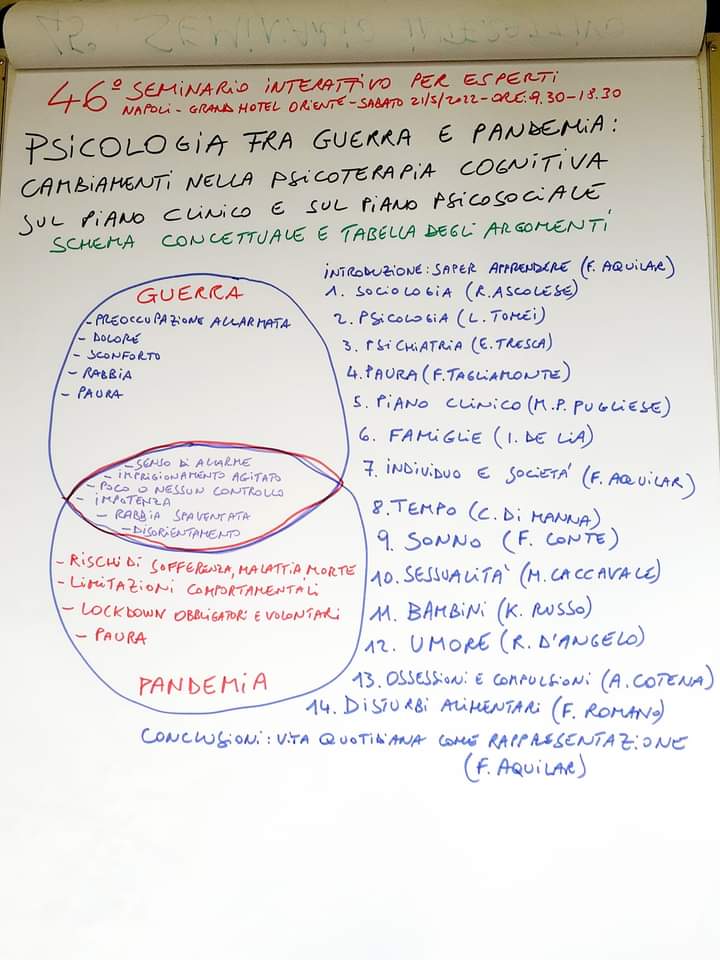 46° SEMINARIO INTERATTIVO PER ESPERTI
NAPOLI - GRAND HOTEL ORIENTE - SABATO 21/5/2022 - ORE: 9.30 - 18.30
PSICOLOGIA FRA GUERRA E PANDEMIA:
CAMBIAMENTI NELLA PSICOTERAPIA COGNITIVA
SUL PIANO CLINICO E SUL PIANO PSICOSOCIALE
SCHEMA CONCETTUALE E TABELLA DEGLI ARGOMENTI
GUERRA
- PREOCCUPAZIONE ALLARMATA
- DOLORE
- SCONFORTO
- RABBIA
- PAURA
- SENSO DI ALLARME
- IMPRIGIONAMENTO AGITATO
- POCO O NESSUN CONTROLLO
- IMPOTENZA
- RABBIA SPAVENTATA
- DISORIENTAMENTO
- RISCHI DI SOFFERENZA, MALATTIA, MORTE
- LIMITAZIONI COMPORTAMENTALI
- LOCKDOWN OBBLIGATORI E VOLONTARI
- PAURA
PANDEMIA
INTRODUZIONE: SAPER APPRENDERE (F. AQUILAR)
1. SOCIOLOGIA (R. ASCOLESE)
2. PSICOLOGIA (L. TOMEI)
3. PSICHIATRIA (E. TRESCA)
4. PAURA (F. TAGLIAMONTE)
5. PIANO CLINICO (M.P. PUGLIESE)
6. FAMIGLIE (I. DE LIA)
7. INDIVIDUO E SOCIETA' (F. AQUILAR)
8. TEMPO (C. DI MANNA)
9. SONNO (F. CONTE)
10. SESSUALITA' (M. CACCAVALE)
11. BAMBINI (K. RUSSO)
12. UMORE (R. D'ANGELO)
13. OSSESSIONI E COMPULSIONI (A. COTENA)
14. DISTURBI ALIMENTARI (F. ROMANO)
CONCLUSIONI: VITA QUOTIDIANA COME RAPPRESENTAZIONE
(F. AQUILAR)